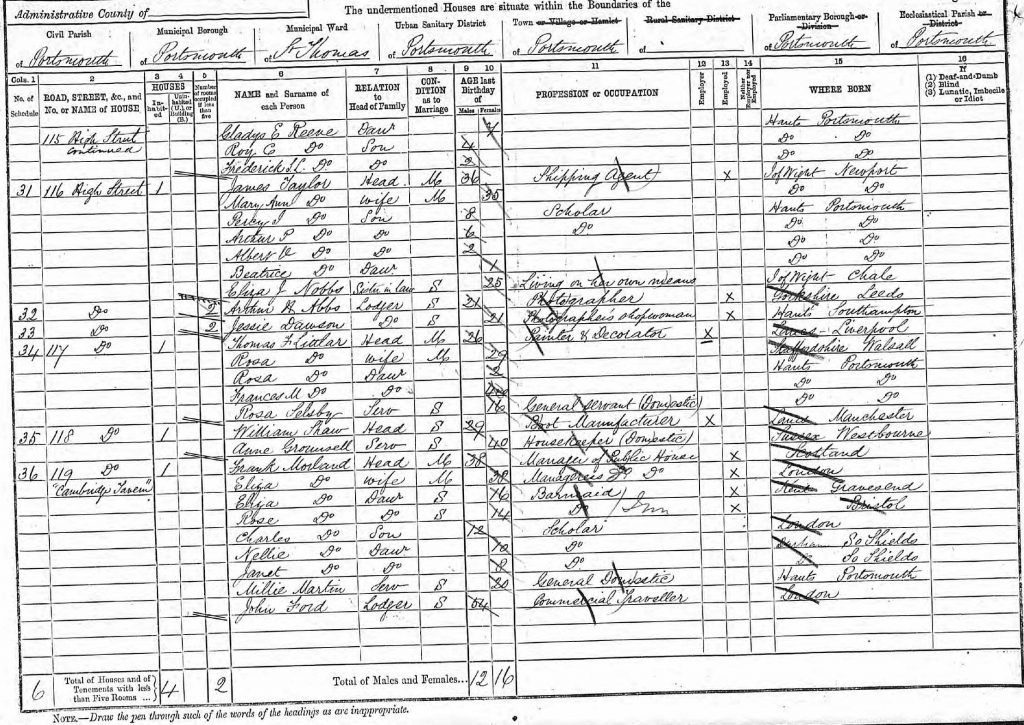 The undermentioned Houses are situate within the Boundaries of the
Administrative County of
Civil Parish
Municipal Borough
Municipal Ward
Urban Sanitary District
Town or Village or Hamlet
Rural Sanitary District
Parliamentary Borough or Division
Ecclesiastical Parish or District
of Portsmouth
of Portsmouth
of St Thomas
of Portsmouth
of Portsmouth
of
of Portsmouth
of Portsmouth
Cols. 1 2 3 4 5 6 7 8 9 10 11 12 13 14 15 16
No. of Schedule
ROAD, STREET, &c., and No. or NAME of HOUSE
HOUSES
In-habited
Uninhabited (U.), or Building (B.)
Number of rooms occupied if less than five
NAME and Surname of each Person
RELATION to Head of Family
CONDITION as to Marriage
AGE last Birthday of
Males Females
PROFESSION or OCCUPATION
Employer
Employed
Neither Employer nor Employed
WHERE BORN
If
(1) Deaf-and-Dumb
(2) Blind
(3) Lunatic, Imbecile or Idiot
115 High Street continued Gladys E Reeve Daur Hants Portsmouth
Roy C Do Son 4 Do Do
Frederick S.L. Do Do 2 Do Do
31 116 High Street 1 James Taylor Head M 36 Shipping Agent x I of Wight Newport
Mary Ann Do Wife M 35 Do Do
Percy J Do Son 8 Scholar Hants Portsmouth
Arthur P Do Do 6 Do Do Do
Albert V Do Do 2 Do Do
Beatrice Do Daur 1 Do Do
Eliza J Nobbs Sister in law S 25 Living on her own means I of Wight Chale
32 Do 2 Arthur H Abbs Lodger S 21 Photographer x Yorkshire Leeds
33 Do 2 Jessie Dawson Do S 21 Photographers shopwoman x Hants Southampton
34 117 Do 1 Thomas F Littlar Head M 26 Painter & Decorator x Lancs Liverpool
Rosa Do Wife M 29 Staffordshire Walsall
Rosa Do Daur 2 Hants Portsmouth
Frances M Do Do Do Do
Rosa Selsby Serv S 16 General Servant (Domestic) Do Do
35 118 Do 1 William Shaw Head S 29 Boot Manufacturer x Lancs Manchester
Anne Grounsell Serv S 40 Housekeeper (Domestic) Sussex Westbourne
36 119 Do 1 Frank Morland Head M 38 Manager of Public House x Scotland
"Cambridge Tavern" Eliza Do Wife M 38 Manageress Do x London
Eliza Do Daur S 16 Barmaid x Kent Gravesend
Rose Do Do S 14 Do Inn x Bristol
Charles Do Son 12 Scholar London
Nellie Do Daur 10 Do Durham So Shields
Janet Do Do 8 Do So Shields
Millie Martin Serv S 20 General Domestic Hants Portsmouth
John Ford Lodger S 54 Commercial Traveller London
6 Total of Houses and of Tenements with less than Five Rooms ... 4 2 Total of Males and Females... 12 16
NOTE.—Draw the pen through such of the words of the headings as are inappropriate.